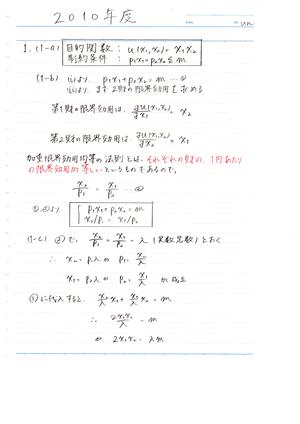 2010年度
1. (1-a) 目的関数 : u(x₁,x₂) = x₁x₂
制約条件 : p₁x₁+p₂x₂ ≦ m
(1-b) (i)より p₁x₁+p₂x₂ = m …①
(ii)より まず 2財の限界効用を求める
第1財の限界効用は、∂u(x₁,x₂)/∂x₁ = x₂
第2財の限界効用は ∂u(x₁,x₂)/∂x₂ = x₁
加重限界効用均等の法則とは、それぞれの財の、1円あたり
の限界効用が等しいというものであるので、
x₂/p₁ = x₁/p₂ …②
①,②より { p₁x₁+p₂x₂ = m
x₂/p₁ = x₁/p₂
(1-c) ②で、x₂/p₁ = x₁/p₂ = λ (実数定数) とおく
∴ x₂ = p₁λ ⇔ p₁ = x₂/λ
x₁ = p₂λ ⇔ p₂ = x₁/λ が成立
①に代入すると、x₂/λ x₁ + x₁/λ x₂ = m
∴ 2x₁x₂/λ = m
⇔ 2x₁x₂ = λm